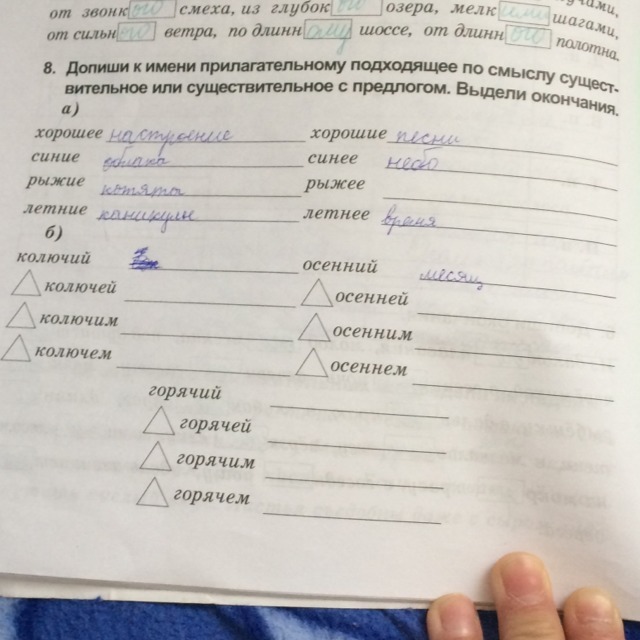 от звонк ого смеха, из глубок ого озера, мелк ими шагами,
от сильн ого ветра, по длинн ому шоссе, от длинн ого полотна.
8. Допиши к имени прилагательному подходящее по смыслу сущест-
вительное или существительное с предлогом. Выдели окончания.
а)
хорошее настроение хорошие песни
синие облака синее небо
рыжие котята рыжее
летние каникулы летнее время
б)
колючий осенний месяц
колючей осенней
колючим осенним
колючем осеннем
горячий
горячей
горячим
горячем